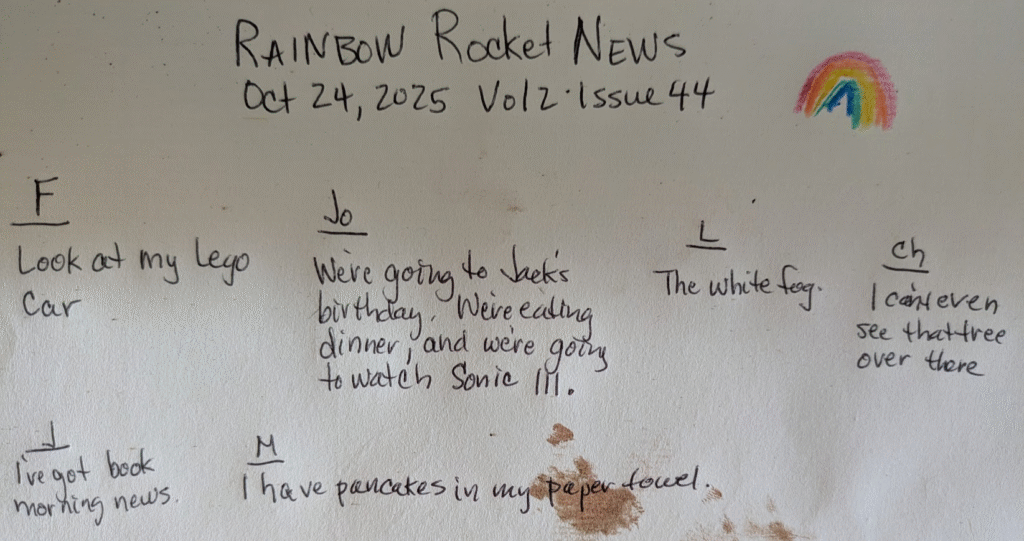 RAINBOW Rocket NEWS
Oct 24, 2025 Vol 2 · Issue 44
F
Look at my Lego
Car
Jo
We're going to Jack's
birthday. We're eating
dinner, and we're going
to watch Sonic III.
L
The white fog.
Ch
I can't even
see that tree
over there
J
I've got book
morning news.
M
I have pancakes in my paper towel.